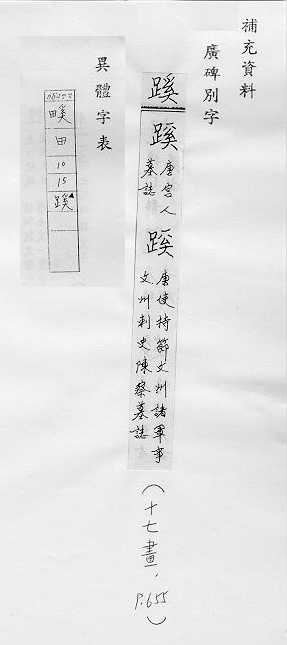 補充資料
廣碑別字
蹊
蹊 唐宮人墓誌
蹊 唐使持節文州諸軍事文州刺史陳察墓誌
（十七畫，P.655）
異體字表
田
10
15
蹊